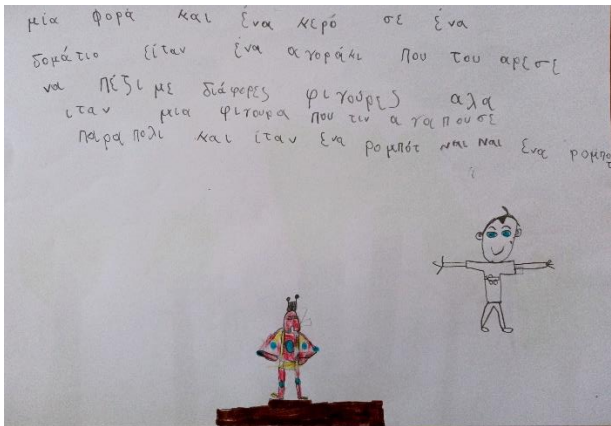 μία φορά και ένα κερό σε ένα
δομάτιο είταν ένα αγοράκι που του αρεσε
να πέζι με διάφορες φιγούρες αλα
ιταν μια φιγουρα που τιν αγαπουσε
παραπολι και ίταν ένα ρομπότ ναι ναι ένα ρομποτ